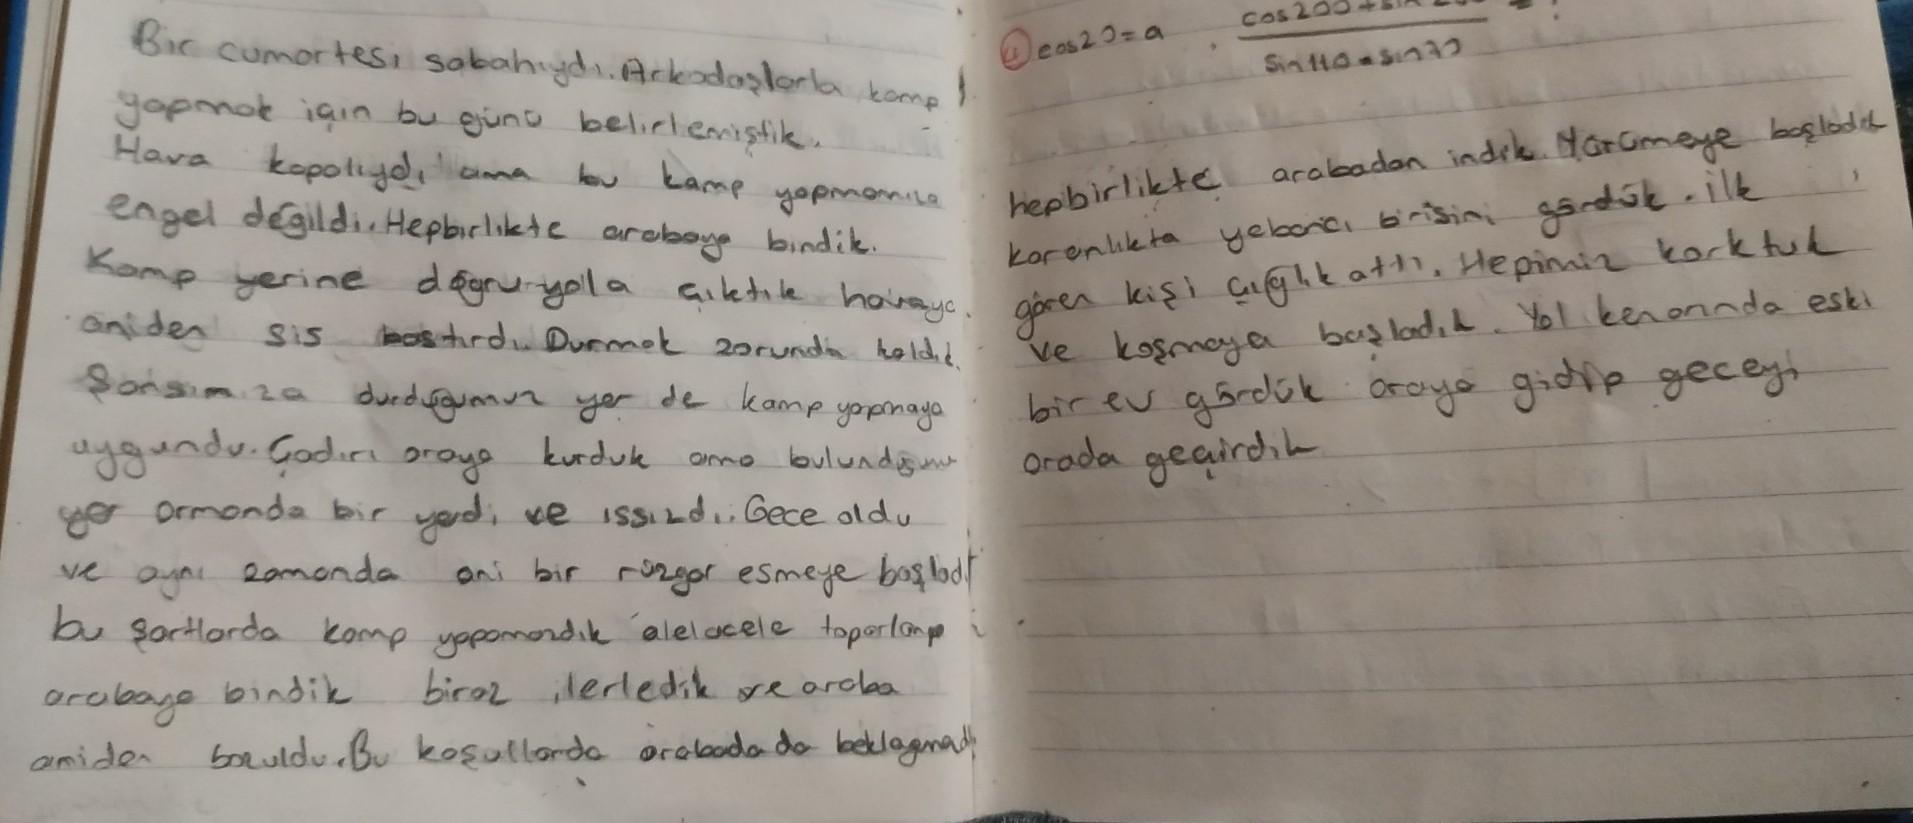 Bir cumartesi sabahıydı. Arkadaşlarla kamp
yapmak için bu günü belirlemiştik.
Hava kapalıydı ama bu kamp yapmamıza
engel değildi. Hepbirlikte arabaya bindik.
Kamp yerine doğru yola çıktık havaya
aniden sis bastırdı. Durmak zorunda kaldık.
Şansımıza durduğumuz yer de kamp yapmaya
uygundu. Çadırı oraya kurduk ama bulunduğumuz
yer ormanda bir yerdi ve ıssızdı. Gece oldu
ve aynı zamanda ani bir rüzgar esmeye başladı
bu şartlarda kamp yapamazdık alelacele toparlanıp
arabaya bindik biraz ilerledik ve araba
aniden bozuldu. Bu koşullarda arabada da beklayamadı
4 cos20=a
sin110 . sin70
hepbirlikte arabadan indik. Yürümeye başladık
karanlıkta yabancı birisini gördük. ilk
gören kişi çığlık attı. Hepimiz korktuk
ve koşmaya başladık. Yol kenarında eski
bir ev gördük oraya gidip geceyi
orada geçirdik